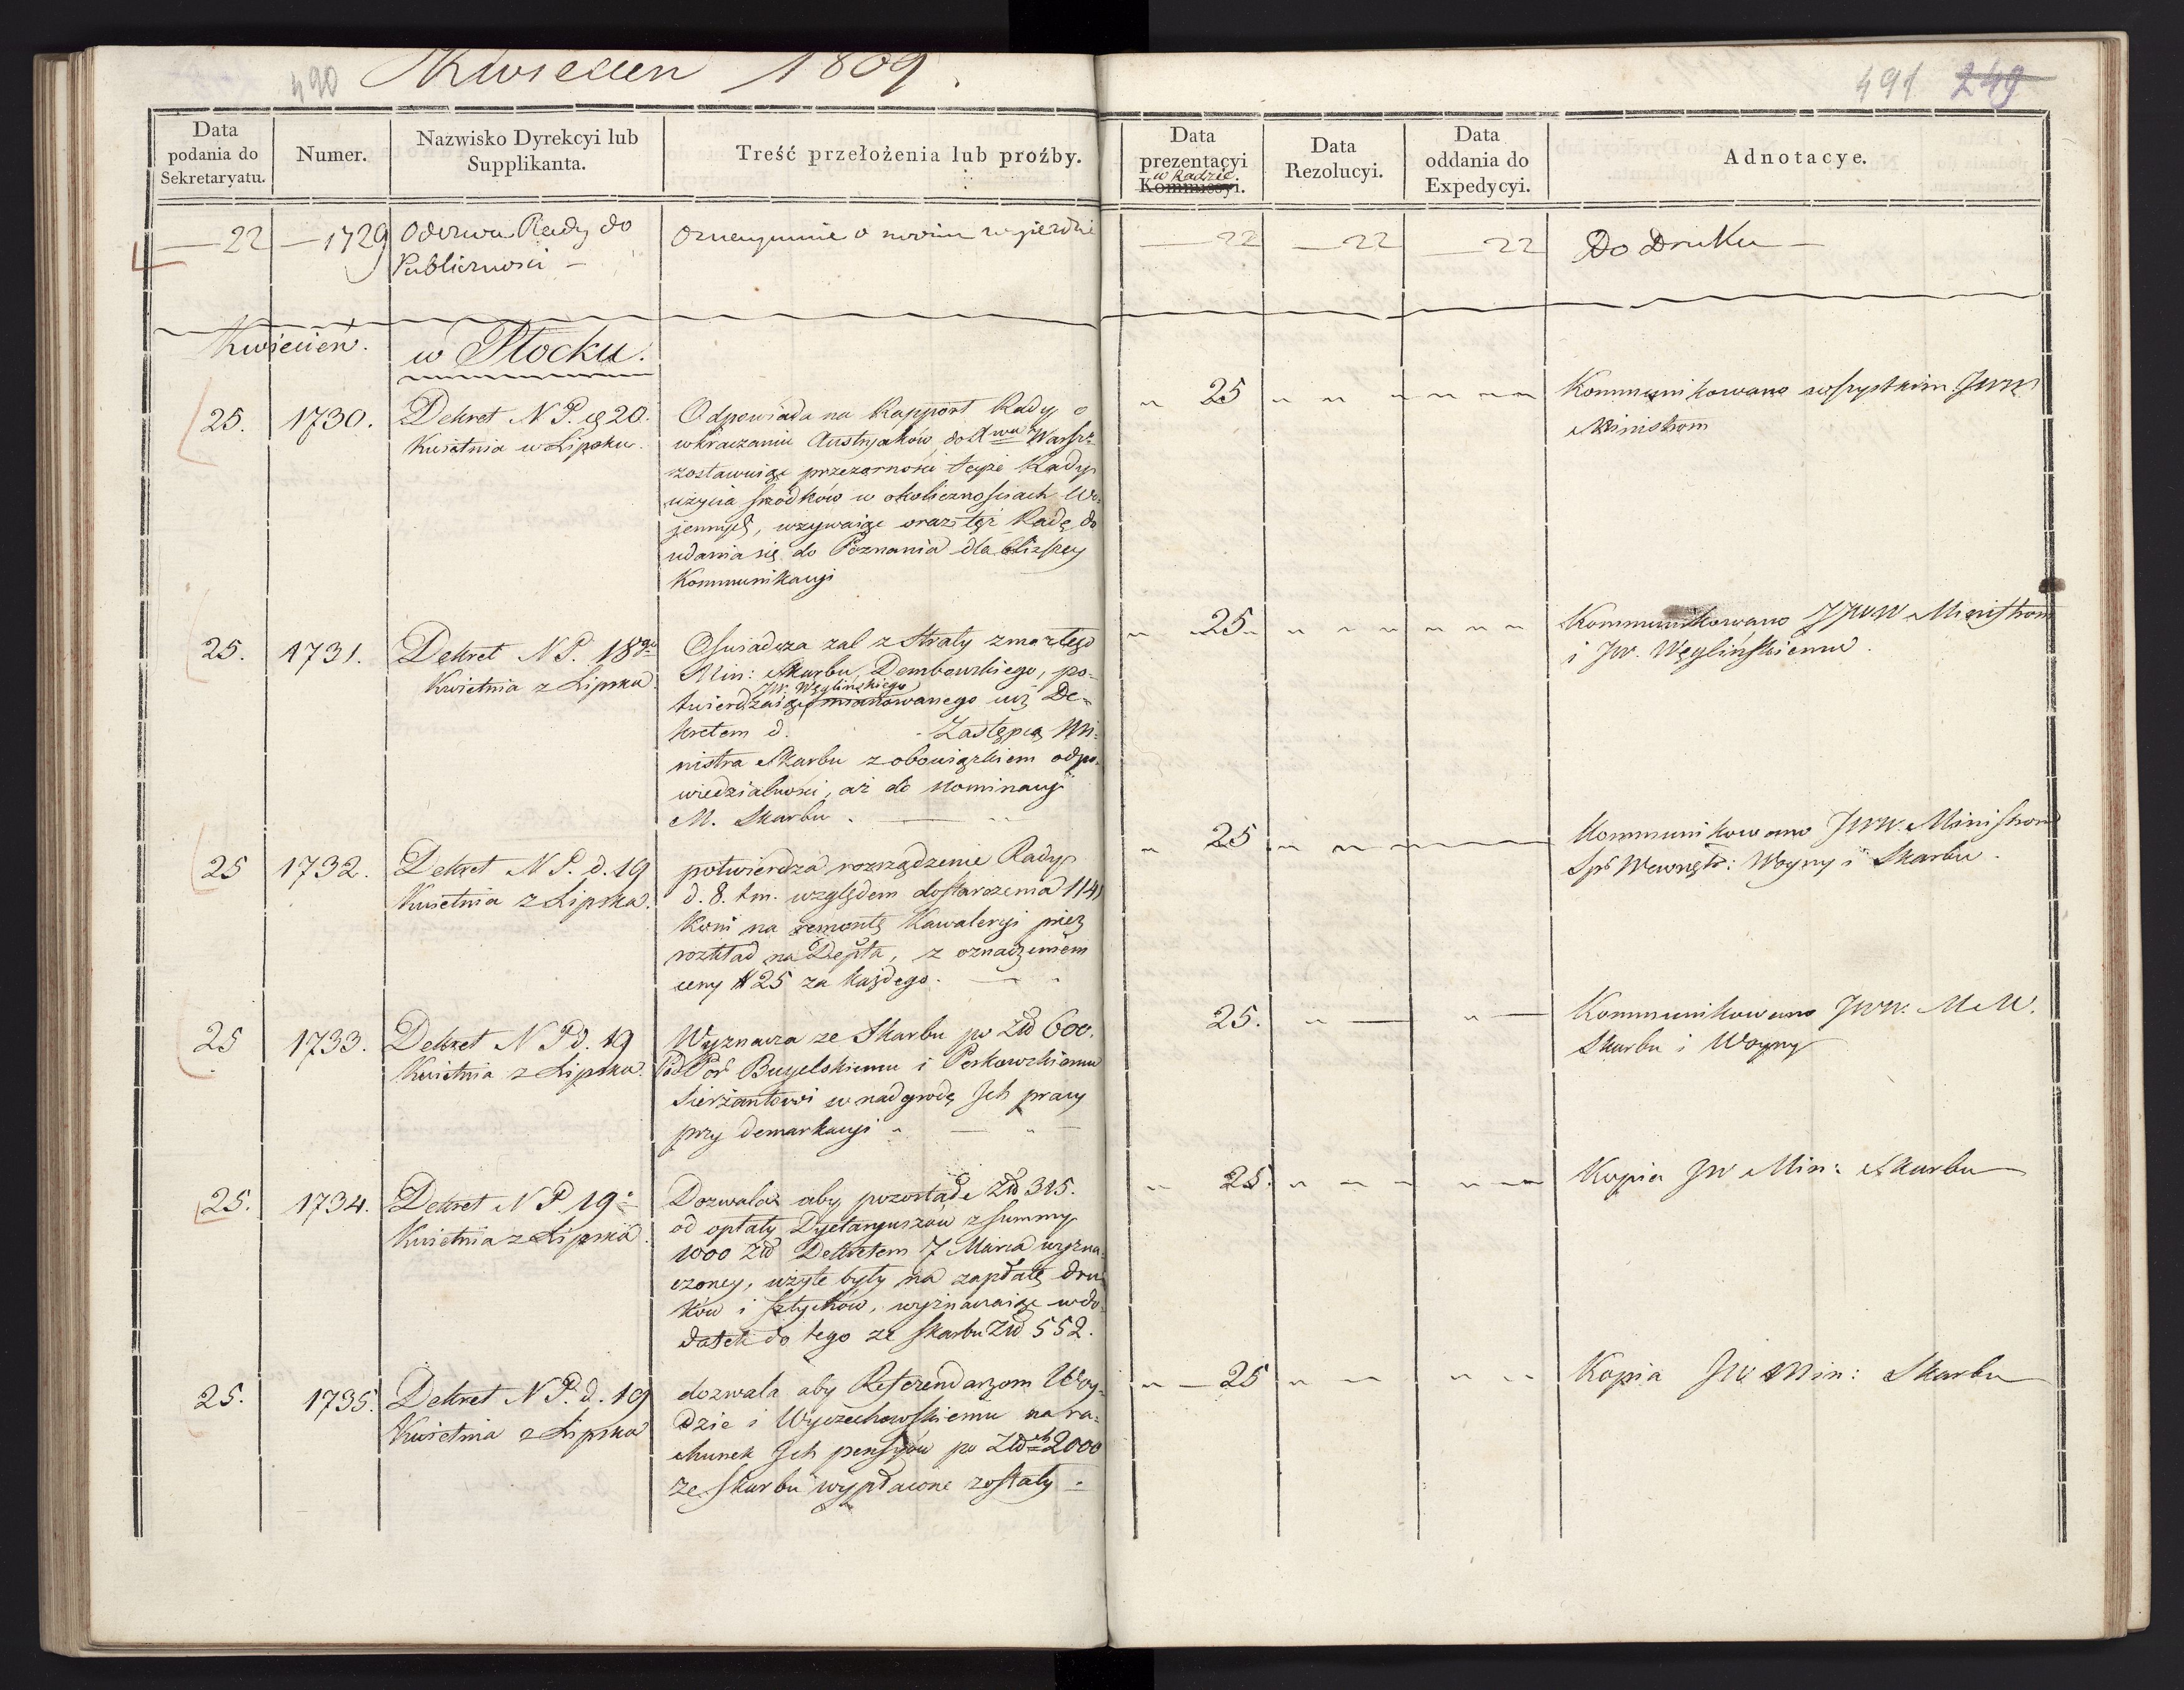 490 Kwiecień 1809.
491 249
Data podania do Sekretaryatu.
Numer.
Nazwisko Dyrekcyi lub Supplikanta.
Treść przełożenia lub proźby.
Data prezentacyi w Radzie Kommissyi.
Data Rezolucyi.
Data oddania do Expedycyi.
Adnotacye.
22 1729 Odezwa Rady do
Publiczności
Oznaymienie o swoim wyjezdzie
22 22 22 Do Druku
Kwiecień. w Płocku.
25. 1730. Dekret N. P. 20.
Kwietnia w Lipsku.
Odpowiada na Rapport Rady o
wkraczaniu Austryaków do Xwa Warsz:
zostawuiąc przezorności teyże Rady
użycia srodków w okolicznosciach Wo-
jennych, wzywaiąc oraz tęż Radę do
udania się do Poznania dla bliższey
Kommunikacyi
25 Kommunikowano wszystkim JWW
Ministrom
25. 1731. Dekret N. P. 18go
Kwietnia z Lipska.
Oswiadcza zal z straty zmarłego
Min: Skarbu, Dembowskiego, po-
JW. Węglińskiego
twierdzaiąc mianowanego już De-
kretem d. Zastępcą Mi-
nistra Skarbu z obowiązkiem odpo-
wiedzialności, aż do Nominacyi
M. Skarbu.
25. Kommunikowano JJWW Ministrom
i JW. Węglińskiemu.
25 1732. Dekret N. P. d. 19
Kwietnia z Lipska.
potwierdza rozrządzenie Rady
d. 8. t.m. względem dostarczenia 1141
koni na remontę Kawaleryi przez
rozkład na Depta, z oznaczeniem
ceny # 25 za każdego.
25 Kommunikowano JWW. Ministrom
Spr Wewnętr: Woyny i Skarbu.
25 1733. Dekret N. P. d. 19
Kwietnia z Lipska.
Wyznacza ze Skarbu po Złd 600.
PodPor Bugelskiemu i Peskowskiemu
Sierżantowi w nadgrodę Ich pracy
przy demarkacyi
25. Kommunikowano JWW. M M.
Skarbu i Woyny
25. 1734. Dekret N P 19
Kwietnia z Lipska.
Dozwala aby pozostałe Złd 315.
od opłaty Dyetaryuszów z summy
1000 Złd Dekretem 7 Marca wyzna-
czoney, użyte były na zapłatę dru-
ków i sztychów, wyznaczaiąc w do-
datek do tego ze skarbu Złd 552.
25. Kopia JW Min: Skarbu
25. 1735. Dekret N. P. d. 19
Kwietnia z Lipska
dozwala aby Referendarzom Woy-
dzie i Wyczechowskiemu na ra-
chunek Ich pensyów po Złch 2000
ze skarbu wypłacone zostały.
25 Kopia JW. Min: Skarbu